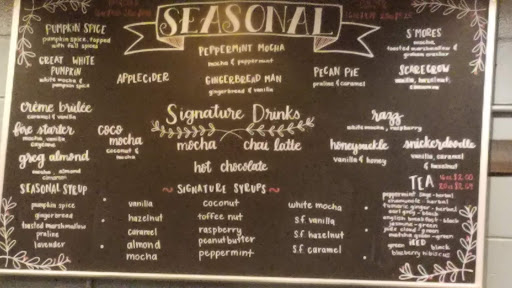 SEASONAL
PUMPKIN SPICE
pumpkin spice, topped
with fall spices
GREAT WHITE
PUMPKIN
white mocha &
pumpkin spice
APPLECIDER
PEPPERMINT MOCHA
mocha & peppermint
GINGERBREAD MAN
gingerbread & vanilla
PECAN PIE
praline & caramel
S'MORES
mocha,
toasted marshmallow
& graham cracker
SCARECROW
vanilla, hazelnut,
cinnamon
Signature Drinks
crème brûlée
caramel & vanilla
fire starter
mocha, vanilla,
cayenne
greg almond
mocha, almond
cinnamon
coco
mocha
coconut &
mocha
mocha
chai latte
hot chocolate
honeysuckle
vanilla & honey
razz
white mocha, raspberry
snickerdoodle
vanilla, caramel
& hazelnut
SEASONAL SYRUP
pumpkin spice
gingerbread
toasted marshmallow
praline
lavender
~ SIGNATURE SYRUPS ~
• vanilla
• hazelnut
• caramel
• almond
mocha
coconut
toffee nut
raspberry
peanutbutter
peppermint
white mocha
s.f. vanilla
s.f. hazelnut
s.f. caramel
TEA
peppermint sage - herbal
chamomile - herbal
turmeric ginger - herbal
earl grey - black
english breakfast - black
jasmine - green
jade cloud - green
matcha green - green
ICED
green black
blueberry hibiscus